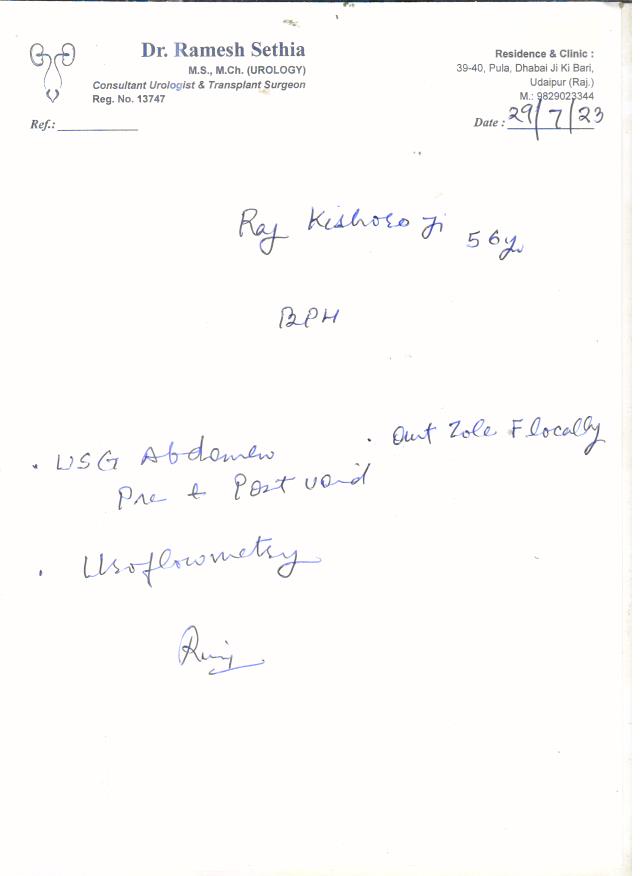 Dr. Ramesh Sethia
M.S., M.Ch. (UROLOGY)
Consultant Urologist & Transplant Surgeon
Reg. No. 13747
Ref.:
Residence & Clinic :
39-40, Pula, Dhabai Ji Ki Bari,
Udaipur (Raj.)
M.: 9829023344
Date : 29/7/23
Raj Kishore Ji 56y
BPH
. USG Abdomen
Pre & Post void
. Oint Zole F locally
. Uroflowmetry